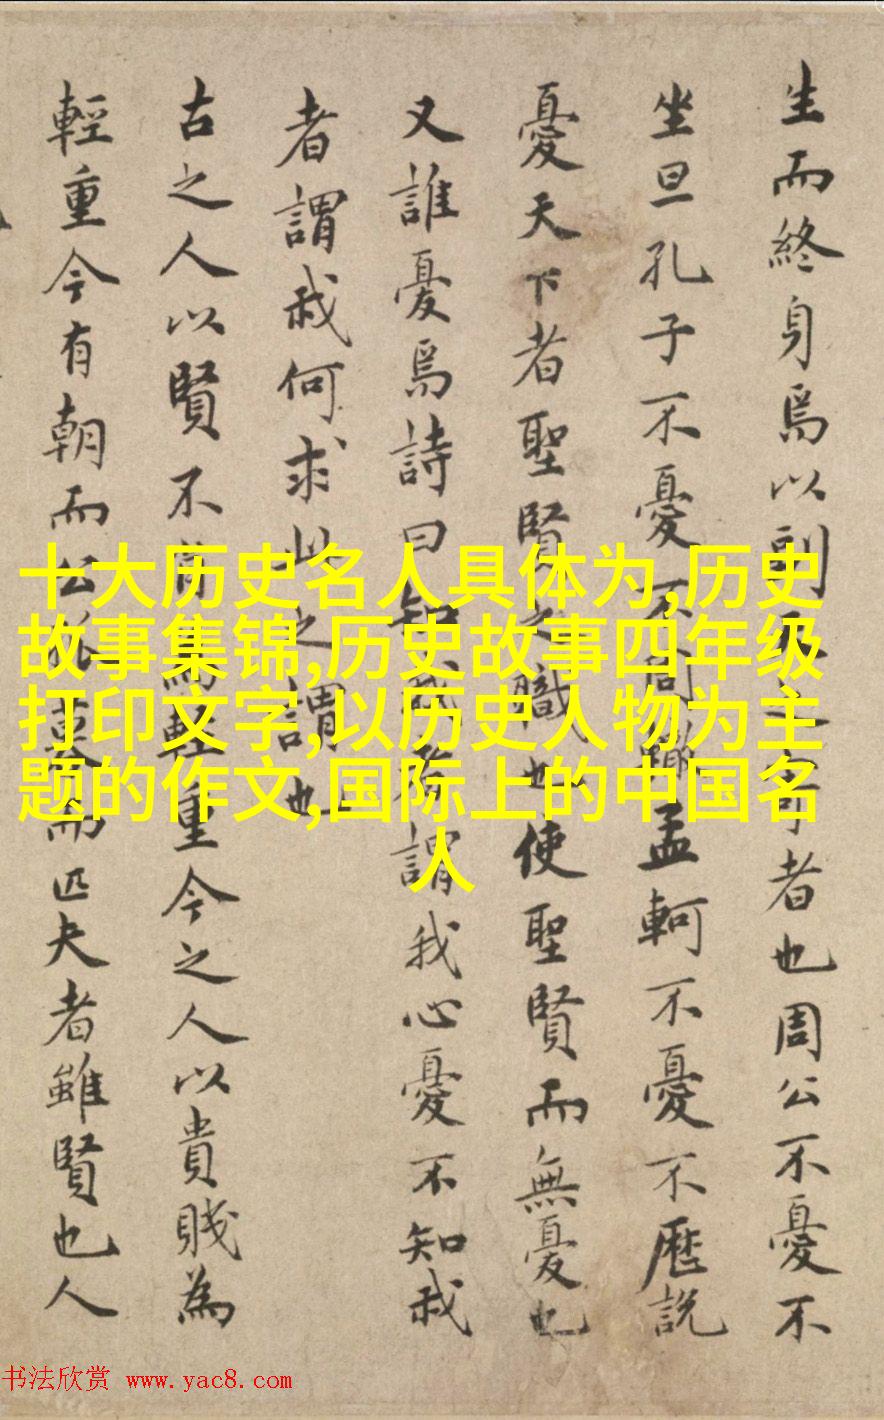 生而終身焉以副之者也周公不憂不
坐旦孔子不憂不孟軻不憂不歷說
憂天下者聖賢之職也使聖賢而無憂也
又誰憂焉詩曰知我者謂我心憂不知我
者謂我何求此之謂也
古之人以賢不肖為輕重今之人以貴賤為
輕重今有朝而公孤暮而匹夫者雖賢也人
十大历史名人具体为,历史
故事集锦,历史故事四年级
打印文字,以历史人物为主
题的作文,国际上的中国名
人
书法欣赏 www.yac8.com